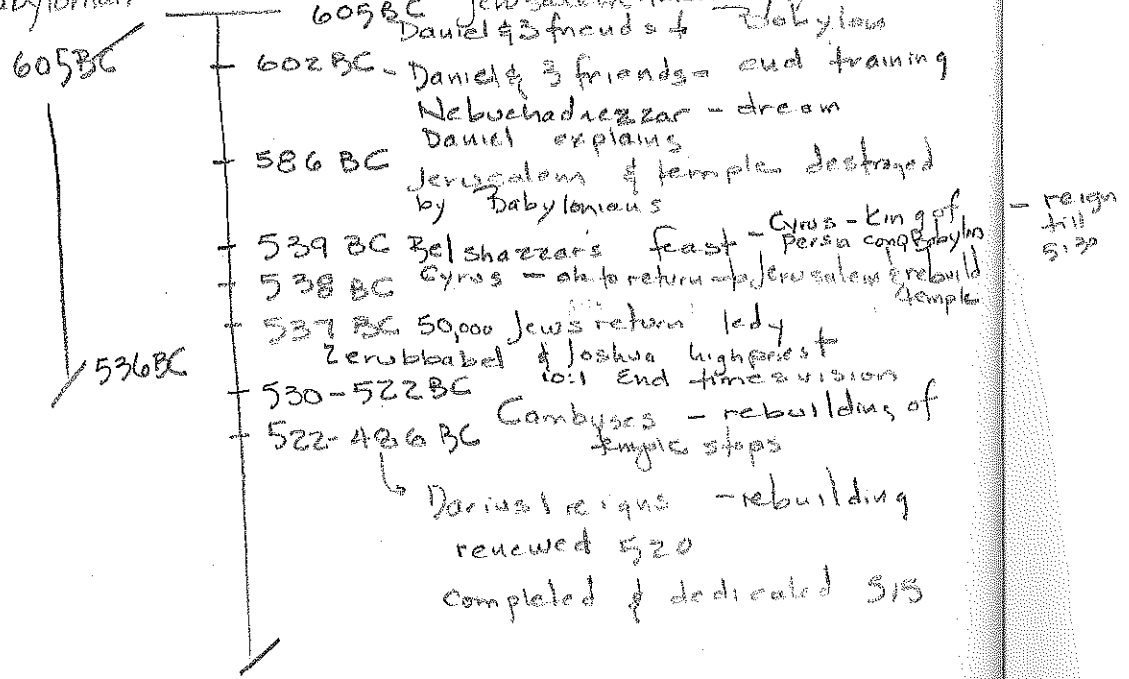 605BC Jerusalem
Daniel & 3 friends + Babylon
605BC
602 BC - Daniel & 3 friends - end training
Nebuchadnezzar - dream
Daniel explains
586 BC Jerusalem & temple destroyed
by Babylonians
539 BC Belshazzar's feast - Cyrus - King of
Persia conq Babylon
- reign
till
530
538 BC Cyrus - ok to return to Jerusalem & rebuild
temple
537 BC 50,000 Jews return led by
Zerubbabel & Joshua high priest
536BC
10:1 End times vision
530-522 BC
Cambyses - rebuilding of
temple stops
522-486 BC
Darius I reigns - rebuilding
renewed 520
completed & dedicated 515